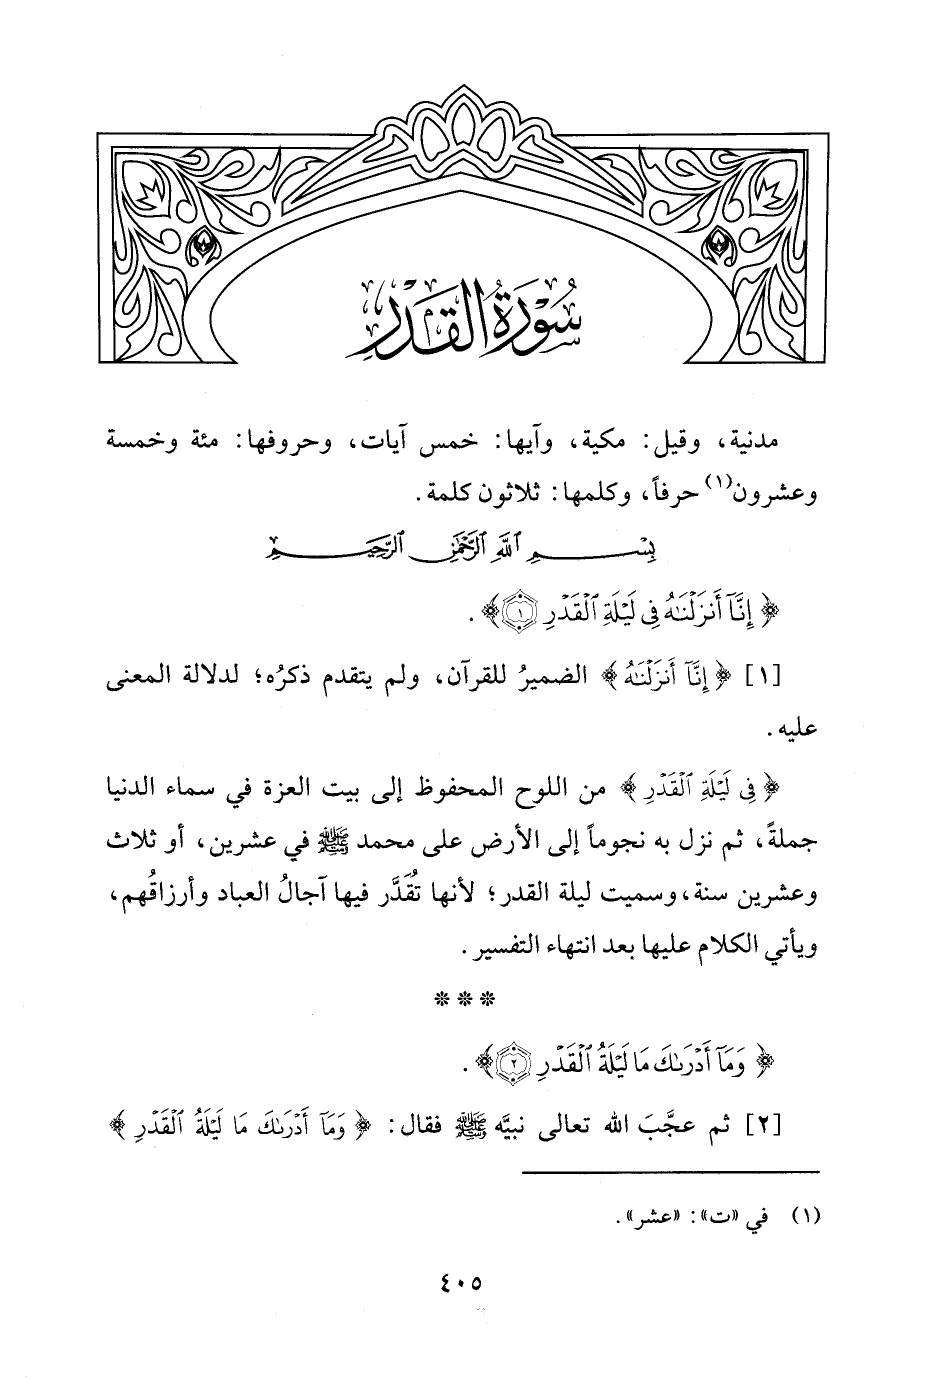 سُورَةُ القَدْرِ
مدنية، وقيل: مكية، وآيها: خمس آيات، وحروفها: مئة وخمسة
وعشرون(١) حرفاً، وكلمها: ثلاثون كلمة.
بِسْمِ ٱللَّهِ ٱلرَّحْمَٰنِ ٱلرَّحِيمِ
﴿ إِنَّآ أَنزَلْنَٰهُ فِى لَيْلَةِ ٱلْقَدْرِ ١ ﴾.
[١] ﴿ إِنَّآ أَنزَلْنَٰهُ ﴾ الضميرُ للقرآن، ولم يتقدم ذكرُه؛ لدلالة المعنى
عليه.
﴿ فِى لَيْلَةِ ٱلْقَدْرِ ﴾ من اللوح المحفوظ إلى بيت العزة في سماء الدنيا
جملةً، ثم نزل به نجوماً إلى الأرض على محمد ﷺ في عشرين، أو ثلاث
وعشرين سنة، وسميت ليلة القدر؛ لأنها تُقَدَّر فيها آجالُ العباد وأرزاقُهم،
ويأتي الكلام عليها بعد انتهاء التفسير.
* * *
﴿ وَمَآ أَدْرَىٰكَ مَا لَيْلَةُ ٱلْقَدْرِ ٢ ﴾.
[٢] ثم عجَّبَ الله تعالى نبيَّه ﷺ فقال: ﴿ وَمَآ أَدْرَىٰكَ مَا لَيْلَةُ ٱلْقَدْرِ ﴾
(١) في «ت»: «عشر».
٤٠٥